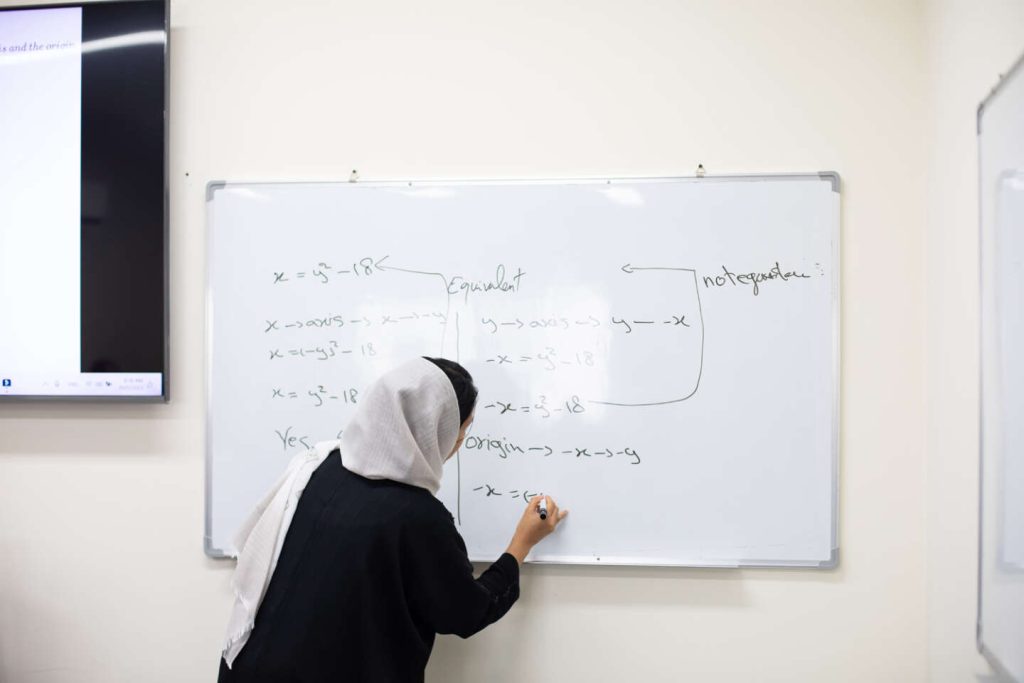 is and the origin
x = y² - 18
Equivalent
x → axis → x → -y
x = (-y)² - 18
x = y² - 18
Yes
y → axis → y — -x
-x = y² - 18
-x = y² - 18
not
origin → -x → -y
-x = (-